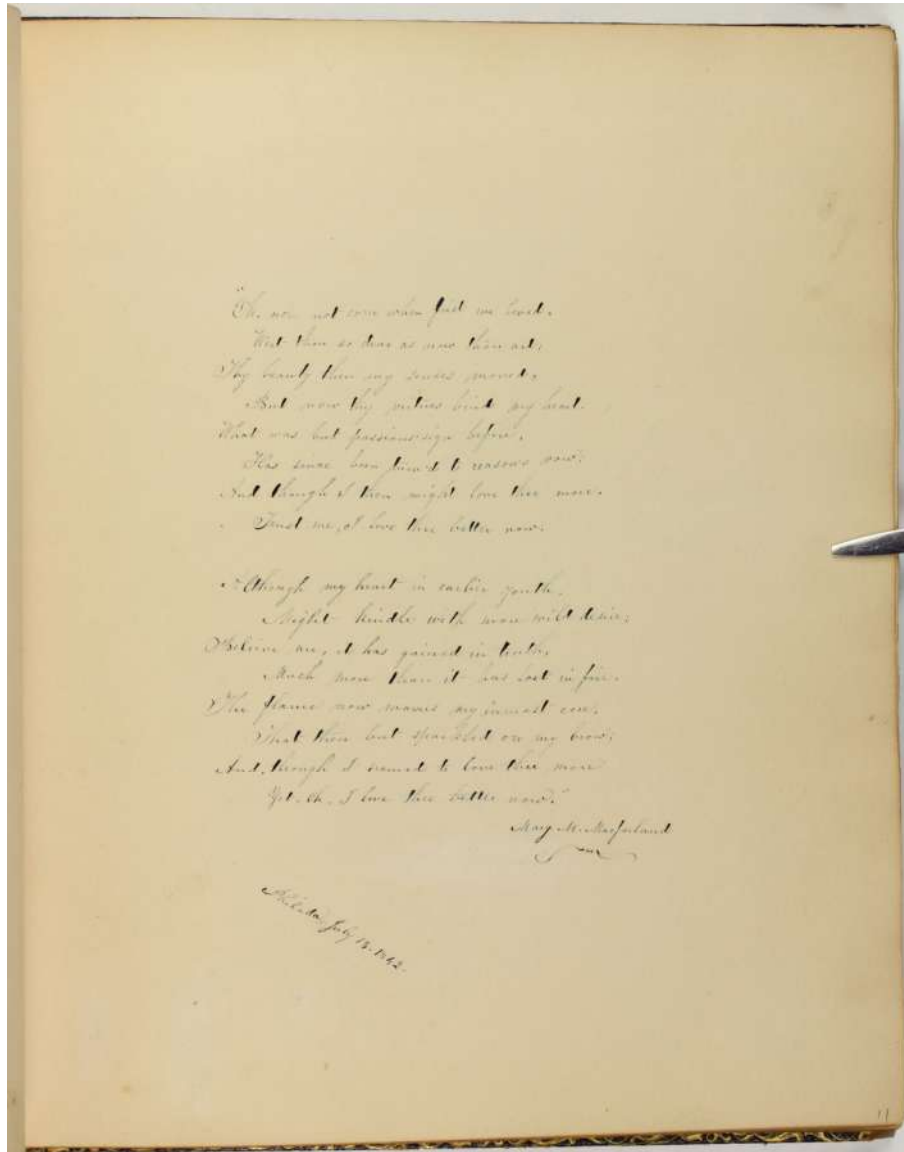 "Oh, no — not e'en when first we loved,
Wert thou so dear as now thou art;
Thy beauty then my senses moved,
But now thy virtues bind my heart.
What was but passion's sign before,
Has since been turn'd to reason's vow;
And, though I then might love thee more,
Trust me, I love thee better now.
Although my heart in earlier youth,
Might kindle with more wild desire;
Believe me, it has gained in truth,
Much more than it has lost in fire.
The flame now moves my inmost core,
That then but sparkled on my brow;
And, though I seemed to love thee more
Yet, Oh, I love thee better now."
Mary M. Macfarland
Philada July 13. 1842.
11